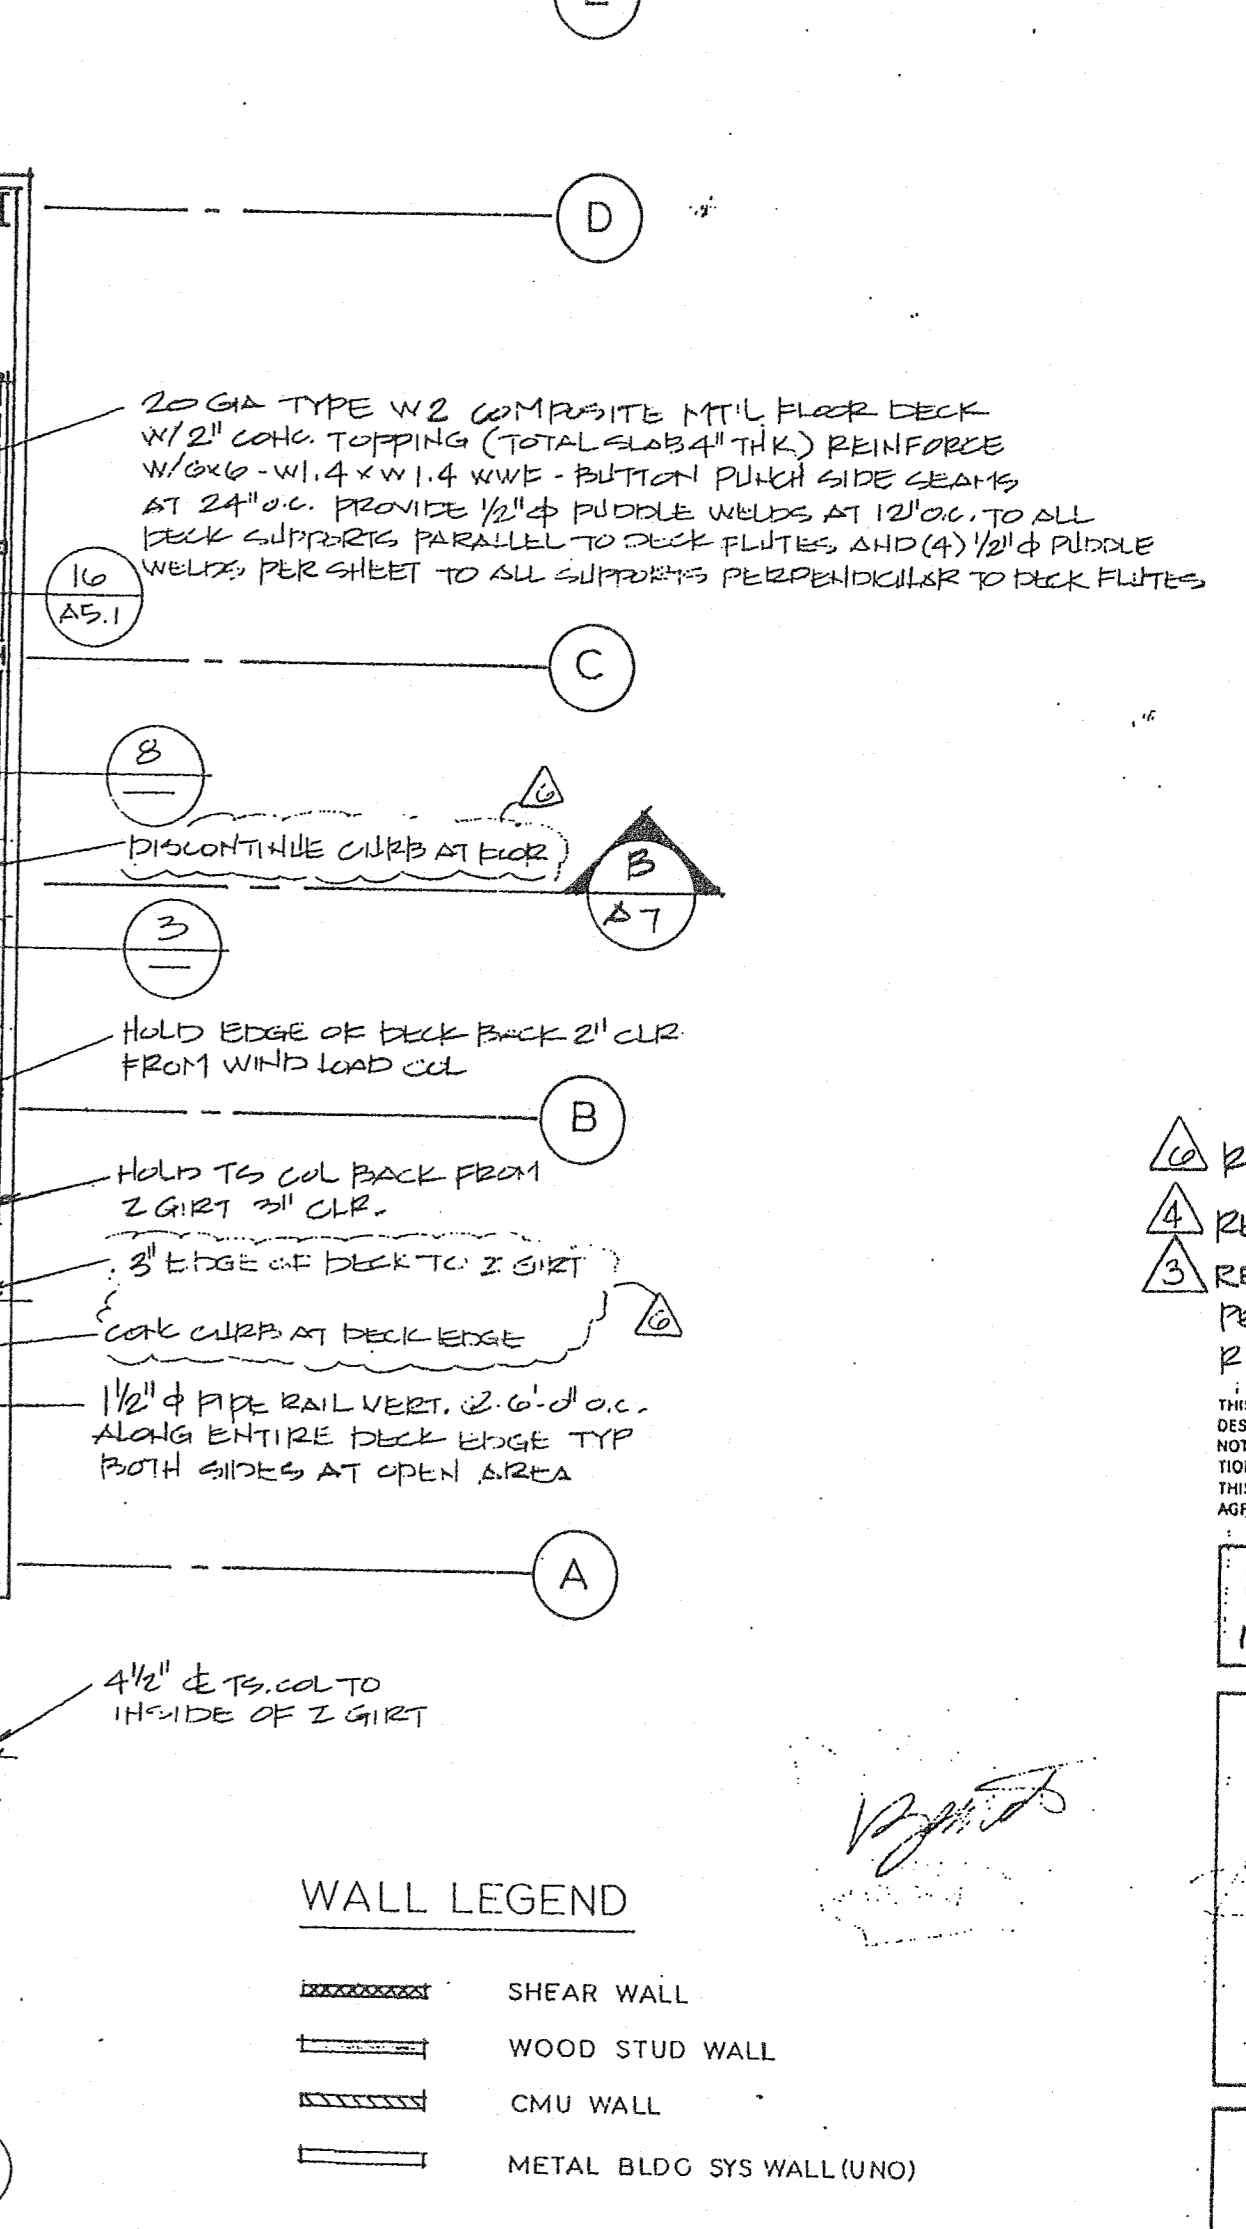 D
20 GA TYPE W2 COMPOSITE MT'L FLOOR DECK
W/2" CONC. TOPPING (TOTAL SLAB 4" THK.) REINFORCE
W/6x6 - W1.4 x W1.4 WWF - BUTTON PUNCH SIDE SEAMS
AT 24" O.C. PROVIDE 1/2" ϕ PUDDLE WELDS AT 12" O.C. TO ALL
DECK SUPPORTS PARALLEL TO DECK FLUTES AND (4) 1/2" ϕ PUDDLE
WELDS PER SHEET TO ALL SUPPORTS PERPENDICULAR TO DECK FLUTES
16
A5.1
C
8
6
DISCONTINUE CURB AT
B
A7
3
HOLD EDGE OF DECK BACK 2" CLR.
FROM WIND LOAD COL
B
HOLD TS COL BACK FROM
Z GIRT 3" CLR.
3" EDGE OF DECK TO Z GIRT
6
CONC CURB AT DECK EDGE
1 1/2" ϕ PIPE RAIL VERT. @ 6'-0" O.C.
ALONG ENTIRE DECK EDGE TYP
BOTH SIDES AT OPEN AREA
A
4 1/2" ℄ TS. COL TO
INSIDE OF Z GIRT
6 R
4
3 RE
THIS
DES
NOT
TIO
THIS
WALL LEGEND
SHEAR WALL
WOOD STUD WALL
CMU WALL
METAL BLDG SYS WALL (UNO)